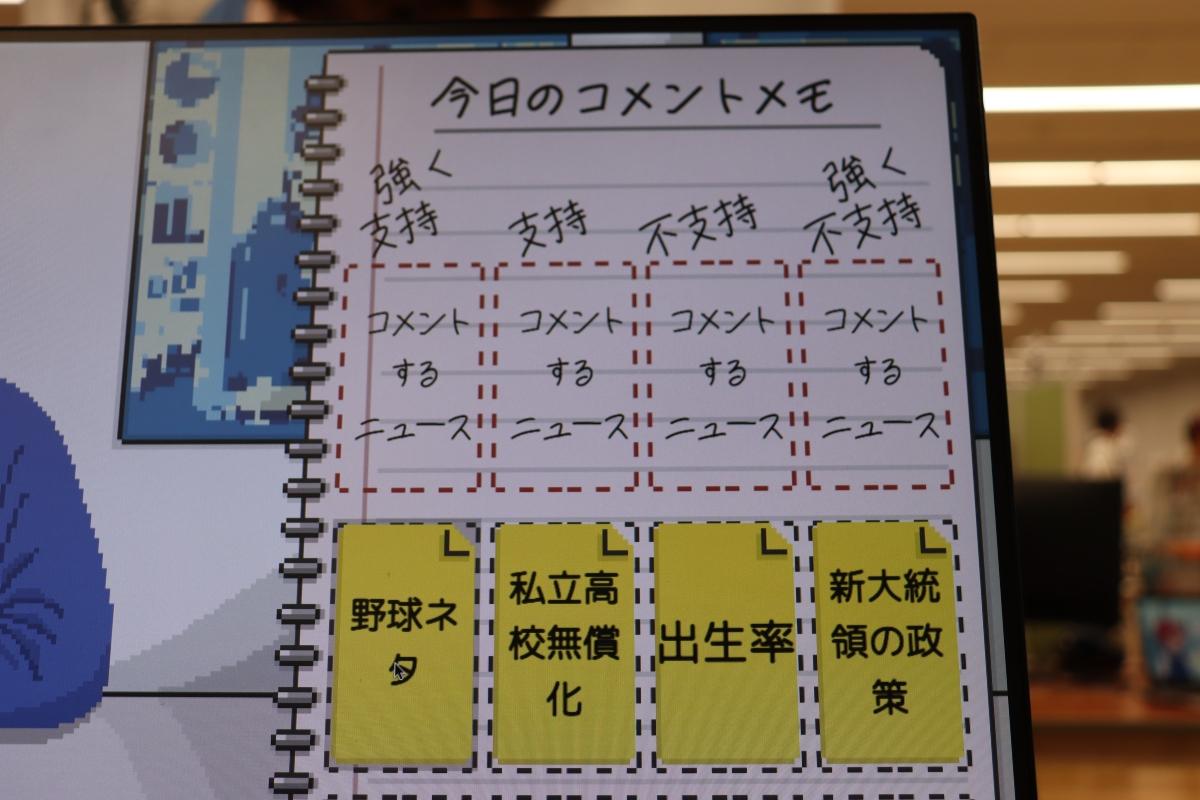 今日のコメントメモ
強く
支持
支持
不支持
強く
不支持
コメント
する
ニュース
コメント
する
ニュース
コメント
する
ニュース
コメント
する
ニュース
野球ネ
タ
私立高
校無償
化
出生率
新大統
領の政
策